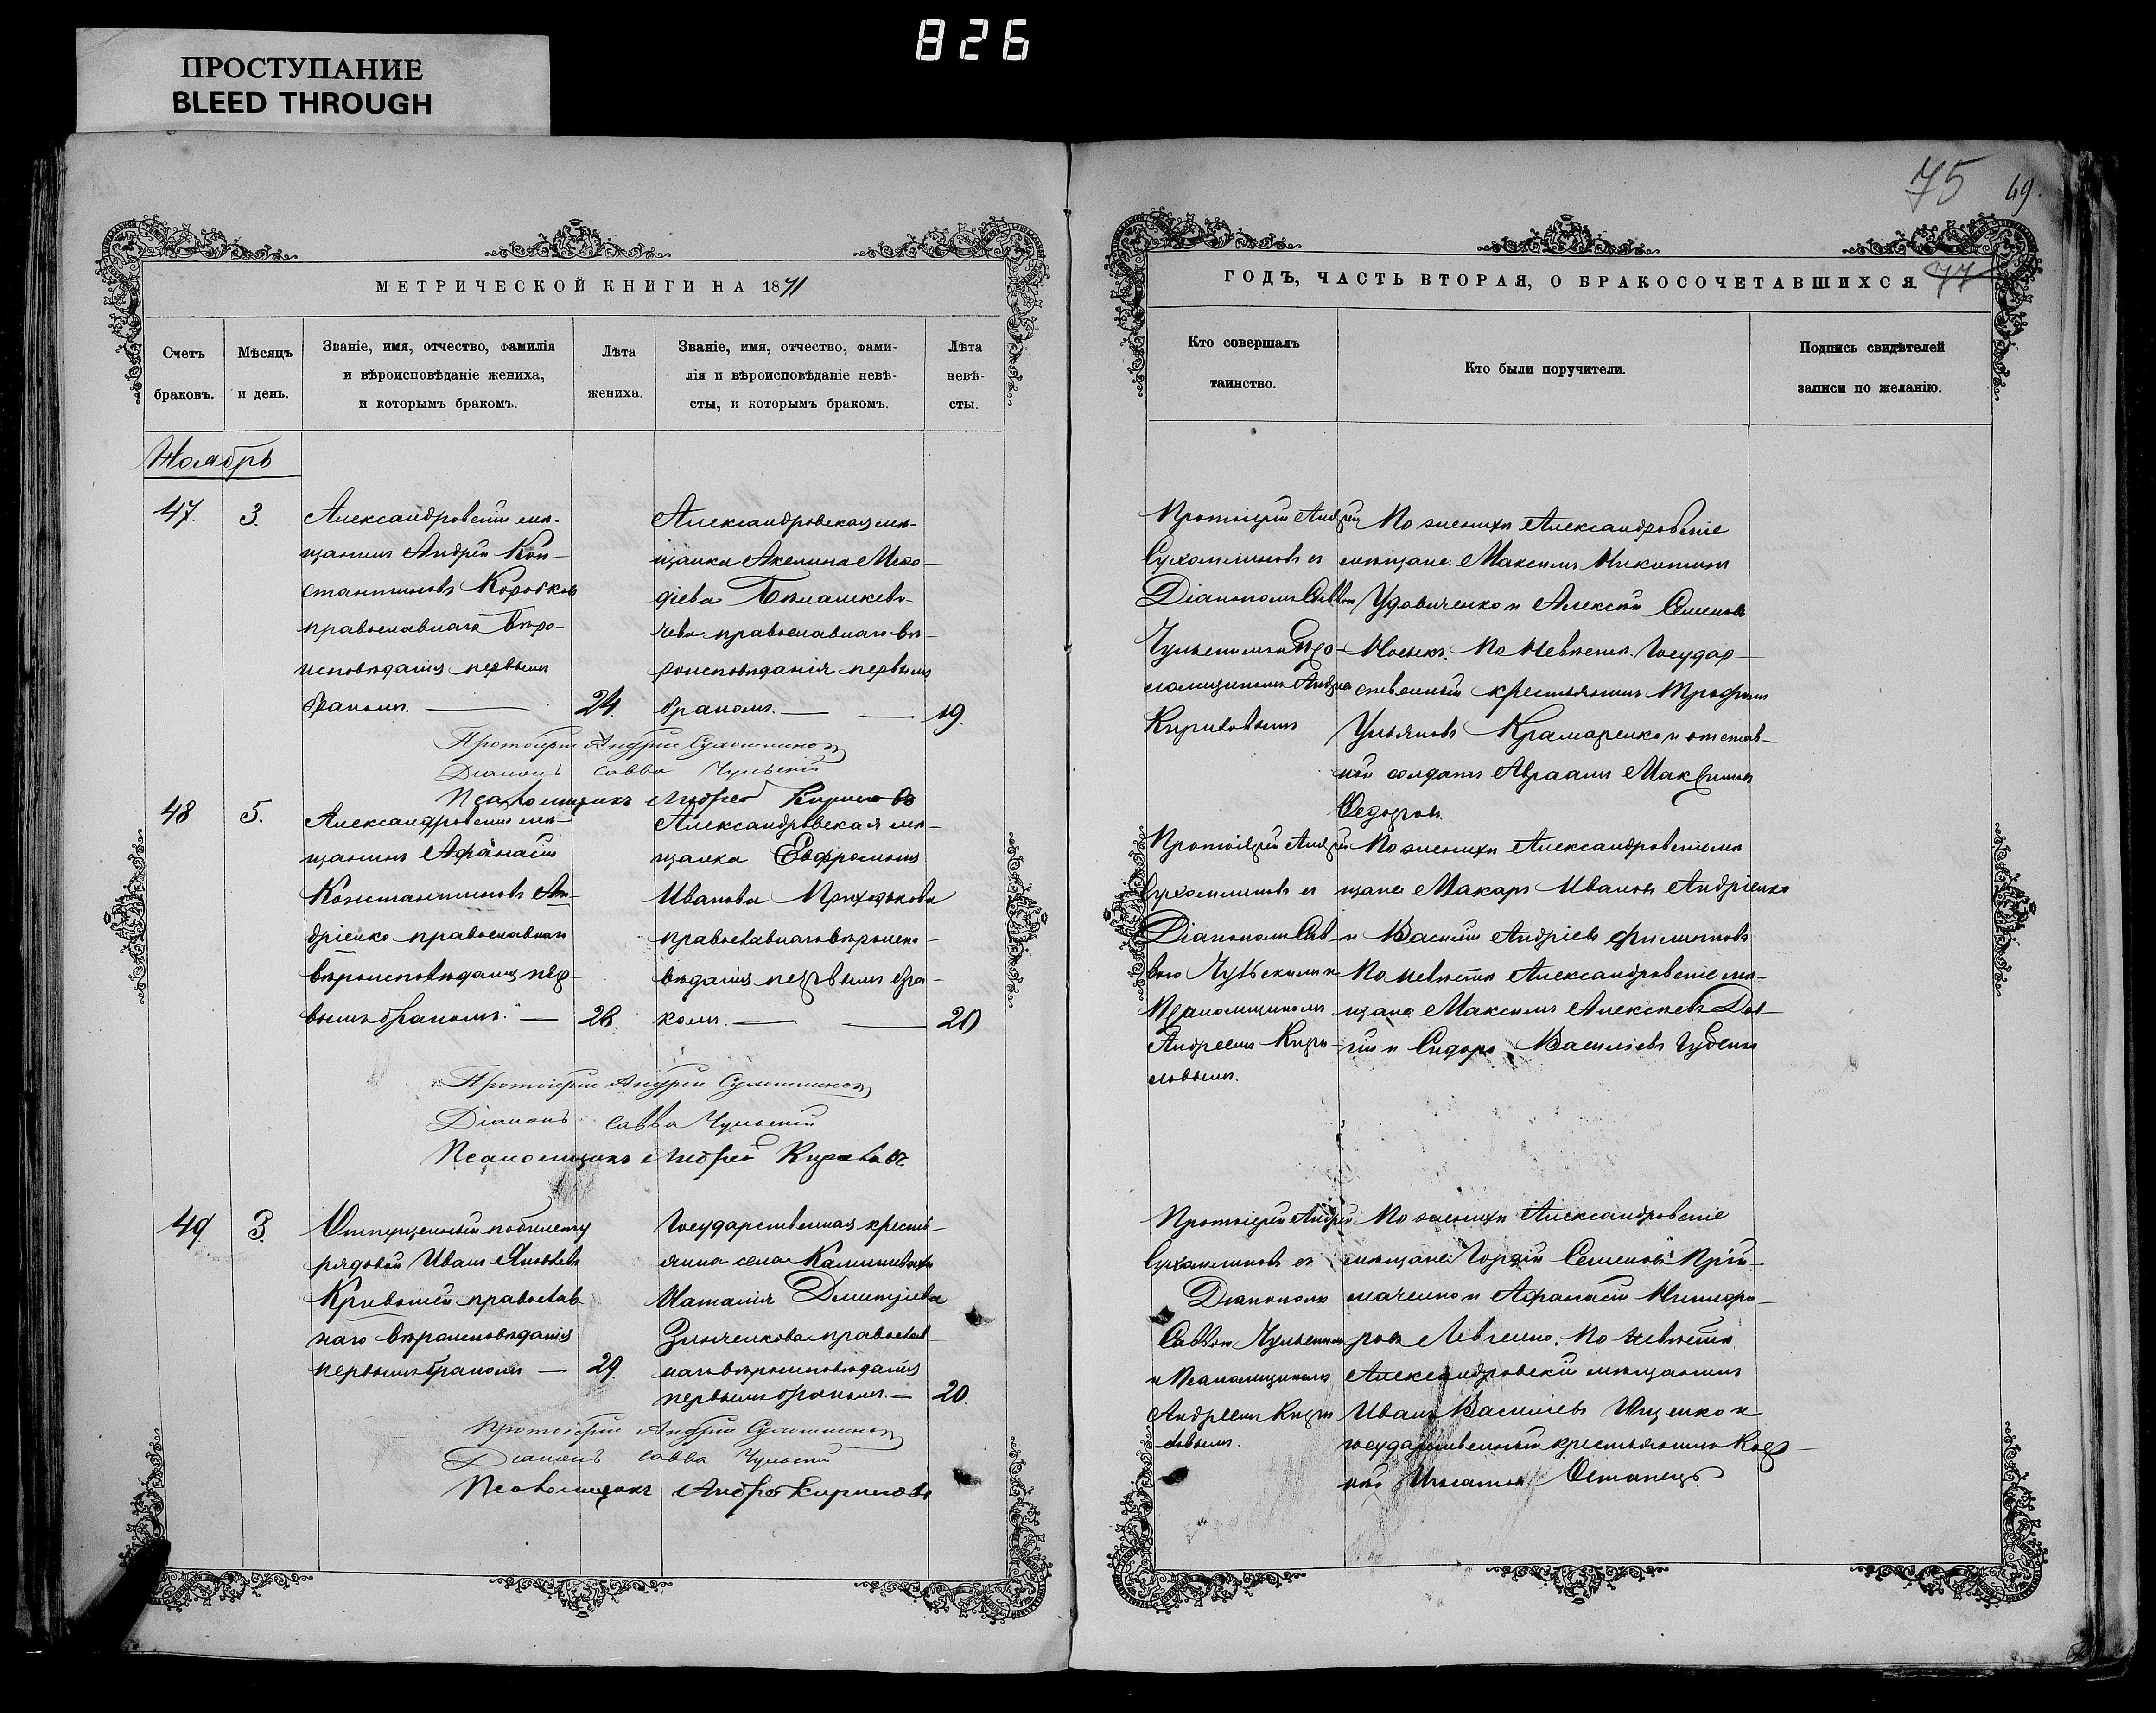 826
ПРОСТУПАНИЕ
BLEED THROUGH
МЕТРИЧЕСКОЙ КНИГИ НА 1871
Счетъ браковъ.
Мѣсяцъ и день.
Званіе, имя, отчество, фамилія
и вѣроисповѣданіе жениха,
и которымъ бракомъ.
Лѣта
жениха.
Званіе, имя, отчество, фами-
лія и вѣроисповѣданіе невѣ-
сты, и которымъ бракомъ.
Лѣта
невѣ-
сты.
Ноябрь
47.
3.
Александровскій мѣ-
щанинъ Андрей Кон-
стантиновъ Коробковъ
православнаго вѣро-
исповѣданія первымъ
бракомъ.
24.
Александровская мѣ-
щанка Акилина Меѳо-
діева
чева православнаго вѣ-
роисповѣданія первымъ
бракомъ.
19.
Протоіерей Андрей Сухомлиновъ
Діаконъ Савва Чульскій
Псаломщикъ Андрей Кириловъ
48
5.
Александровскій мѣ-
щанинъ Афанасій
Константиновъ Ан-
дріенко православнаго
вѣроисповѣданія пер-
вымъ бракомъ.
28.
Александровская мѣ-
щанка Евфросинія
Иванова Приходькова
православнаго вѣроиспо-
вѣданія первымъ бра-
комъ.
20
Протоіерей Андрей Сухомлиновъ
Діаконъ Савва Чульскій
Псаломщикъ Андрей Кириловъ
49.
3.
Отпущенный по билету
рядовой Иванъ Яковлевъ
православ-
наго вѣроисповѣданія
первымъ бракомъ
29.
Государственная кресть-
янка села
Наталія Димитріева
Зинченкова православ-
наго вѣроисповѣданія
первымъ бракомъ.
20.
Протоіерей Андрей Сухомлиновъ
Діаконъ Савва Чульскій
Псаломщикъ Андрей Кириловъ
75
69.
77
ГОДЪ, ЧАСТЬ ВТОРАЯ, О БРАКОСОЧЕТАВШИХСЯ.
Кто совершалъ
таинство.
Кто были поручители.
Подпись свидѣтелей
записи по желанію.
Протоіерей Андрей
Сухомлиновъ съ
Діакономъ Саввою
Чульскимъ и Пса-
ломщикомъ Андреемъ
Кириловымъ
По женихѣ Александровскіе
мѣщане: Максимъ Никитинъ
Удовиченко и Алексѣй Семеновъ
По невѣстѣ: Государ-
ственный крестьянинъ Трофимъ
Ульяновъ Крамаренко и отстав-
ной солдатъ Авраамъ Максимовъ
Ѳедоровъ.
Протоіерей Андрей
Сухомлиновъ съ
Діакономъ Сав-
вою Чульскимъ и
Псаломщикомъ
Андреемъ Кири-
ловымъ.
По женихѣ Александровскіе мѣ-
щане Макаръ Ивановъ Андріенко
и Василій Андріевъ Филиповъ
По невѣстѣ Александровскіе мѣ-
щане Максимъ Алексѣевъ Дол-
гій и Сидоръ Васильевъ
Протоіерей Андрей
Сухомлиновъ съ
Діакономъ
Саввою Чульскимъ
и Псаломщикомъ
Андреемъ Кири-
ловымъ.
По женихѣ Александровскіе
мѣщане: Гордій Семеновъ Прій-
маченко и Афанасій Никифо-
ровъ Левченко. По невѣстѣ
Александровскій мѣщанинъ
Иванъ Васильевъ Ищенко и
государственный крестьянинъ
Игнатовъ Останецъ